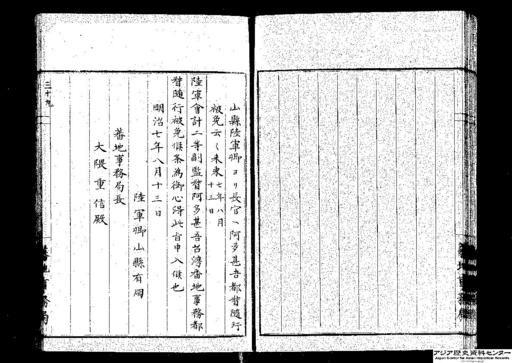 山縣陸軍卿ヨリ長官ヘ阿多甚吾都督随行
被免云々来柬 七年八月十三日
陸軍會計二等副監督阿多甚吾台湾蕃地事務都
督随行被免候条為御心得此旨申入候也
明治七年八月十三日
陸軍卿山縣有朋
蕃地事務局長
大隈重信殿
三十九
蕃地事務局
アジア歴史資料センター
Japan Center for Asian Historical Records